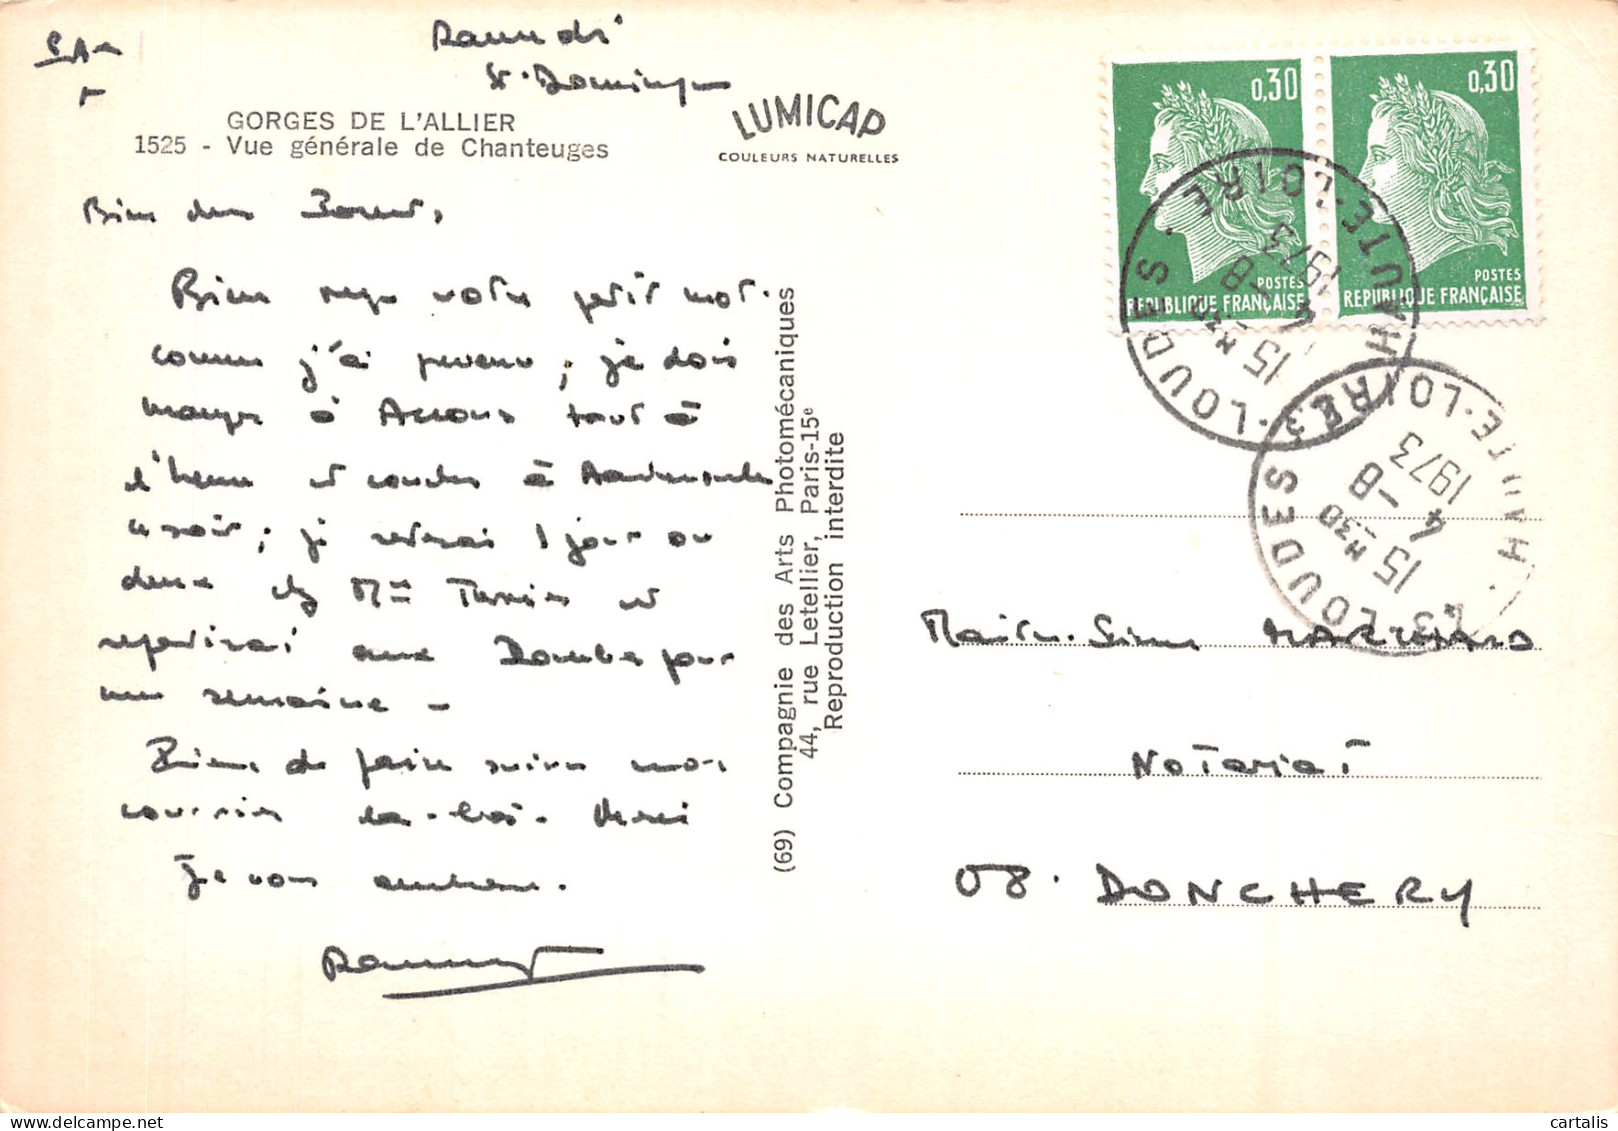 St. Dominique
LUMICAP
COULEURS NATURELLES
GORGES DE L'ALLIER
1525 - Vue générale de Chanteuges
Bien
Bien reçu votre petit mot.
comme j'ai ; je dois
manger à tout à
l'heure et coucher à
ce soir ; je resterai 1 jour ou
deux chez Mme et
repartirai aux Dombes pour
une semaine -
de faire suivre mon
courrier là-bas. Merci
Je vous embrasse.
(69) Compagnie des Arts Photomécaniques
44, rue Letellier, Paris-15e
Reproduction interdite
0,30
POSTES
REPUBLIQUE FRANÇAISE
0,30
POSTES
REPUBLIQUE FRANÇAISE
43 LOUDES · HAUTE-LOIRE
15 H30
4 -8
1973
43 LOUDES · HAUTE-LOIRE
15 H30
4 -8
1973
Maître
Notariat
08. DONCHERY
cartalis